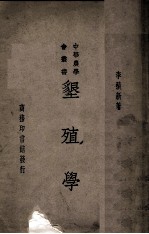 李積新著
中華農學
會叢書
墾殖學
商務印書館發行